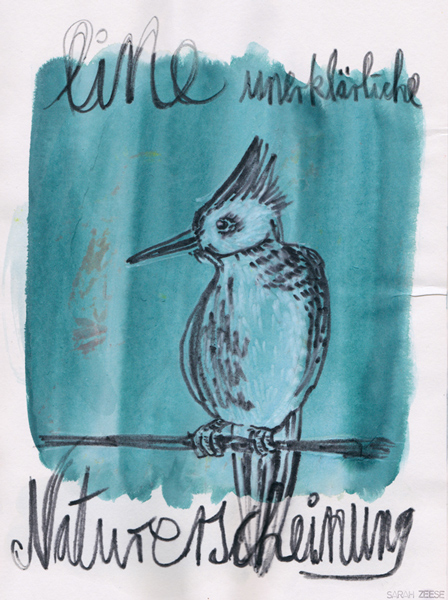 eine unerklärliche
Naturerscheinung
SARAH ZEESE